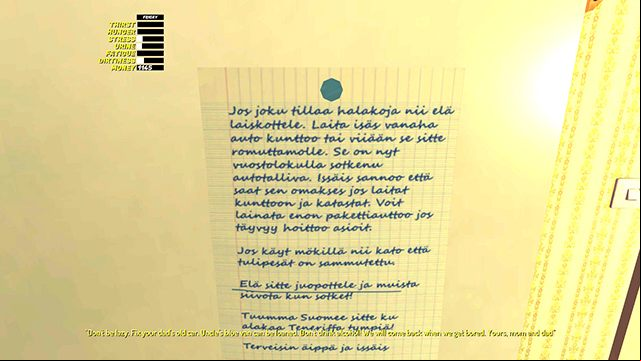 FRIDAY
THIRST
HUNGER
STRESS
URINE
FATIGUE
DIRTINESS
MONEY
Jos joku tillaa halakoja nii elä
laiskottele. Laita isäs vanaha
auto kunttoo tai viiään se sitte
romuttamolle. Se on nyt
vuostolokulla sotkenu
autotalliva. Issäis sannoo että
saat sen omakses jos laitat
kunttoon ja katastat. Voit
lainata enon pakettiauttoo jos
täyvyy hoittoo asioit.
Jos käyt mökillä nii kato että
tulipesät on sammutettu.
Elä sitte juopottele ja muista
siivota kun sotket!
Tuumma Suomee sitte ku
alakaa Teneriffa tympiä!
"Don't be lazy. Fix your dad's old car. Uncle's blue van can be loaned. Don't drink alcohol! We will come back when we get bored. Yours, mom and dad"
Terveisin äippä ja issäis